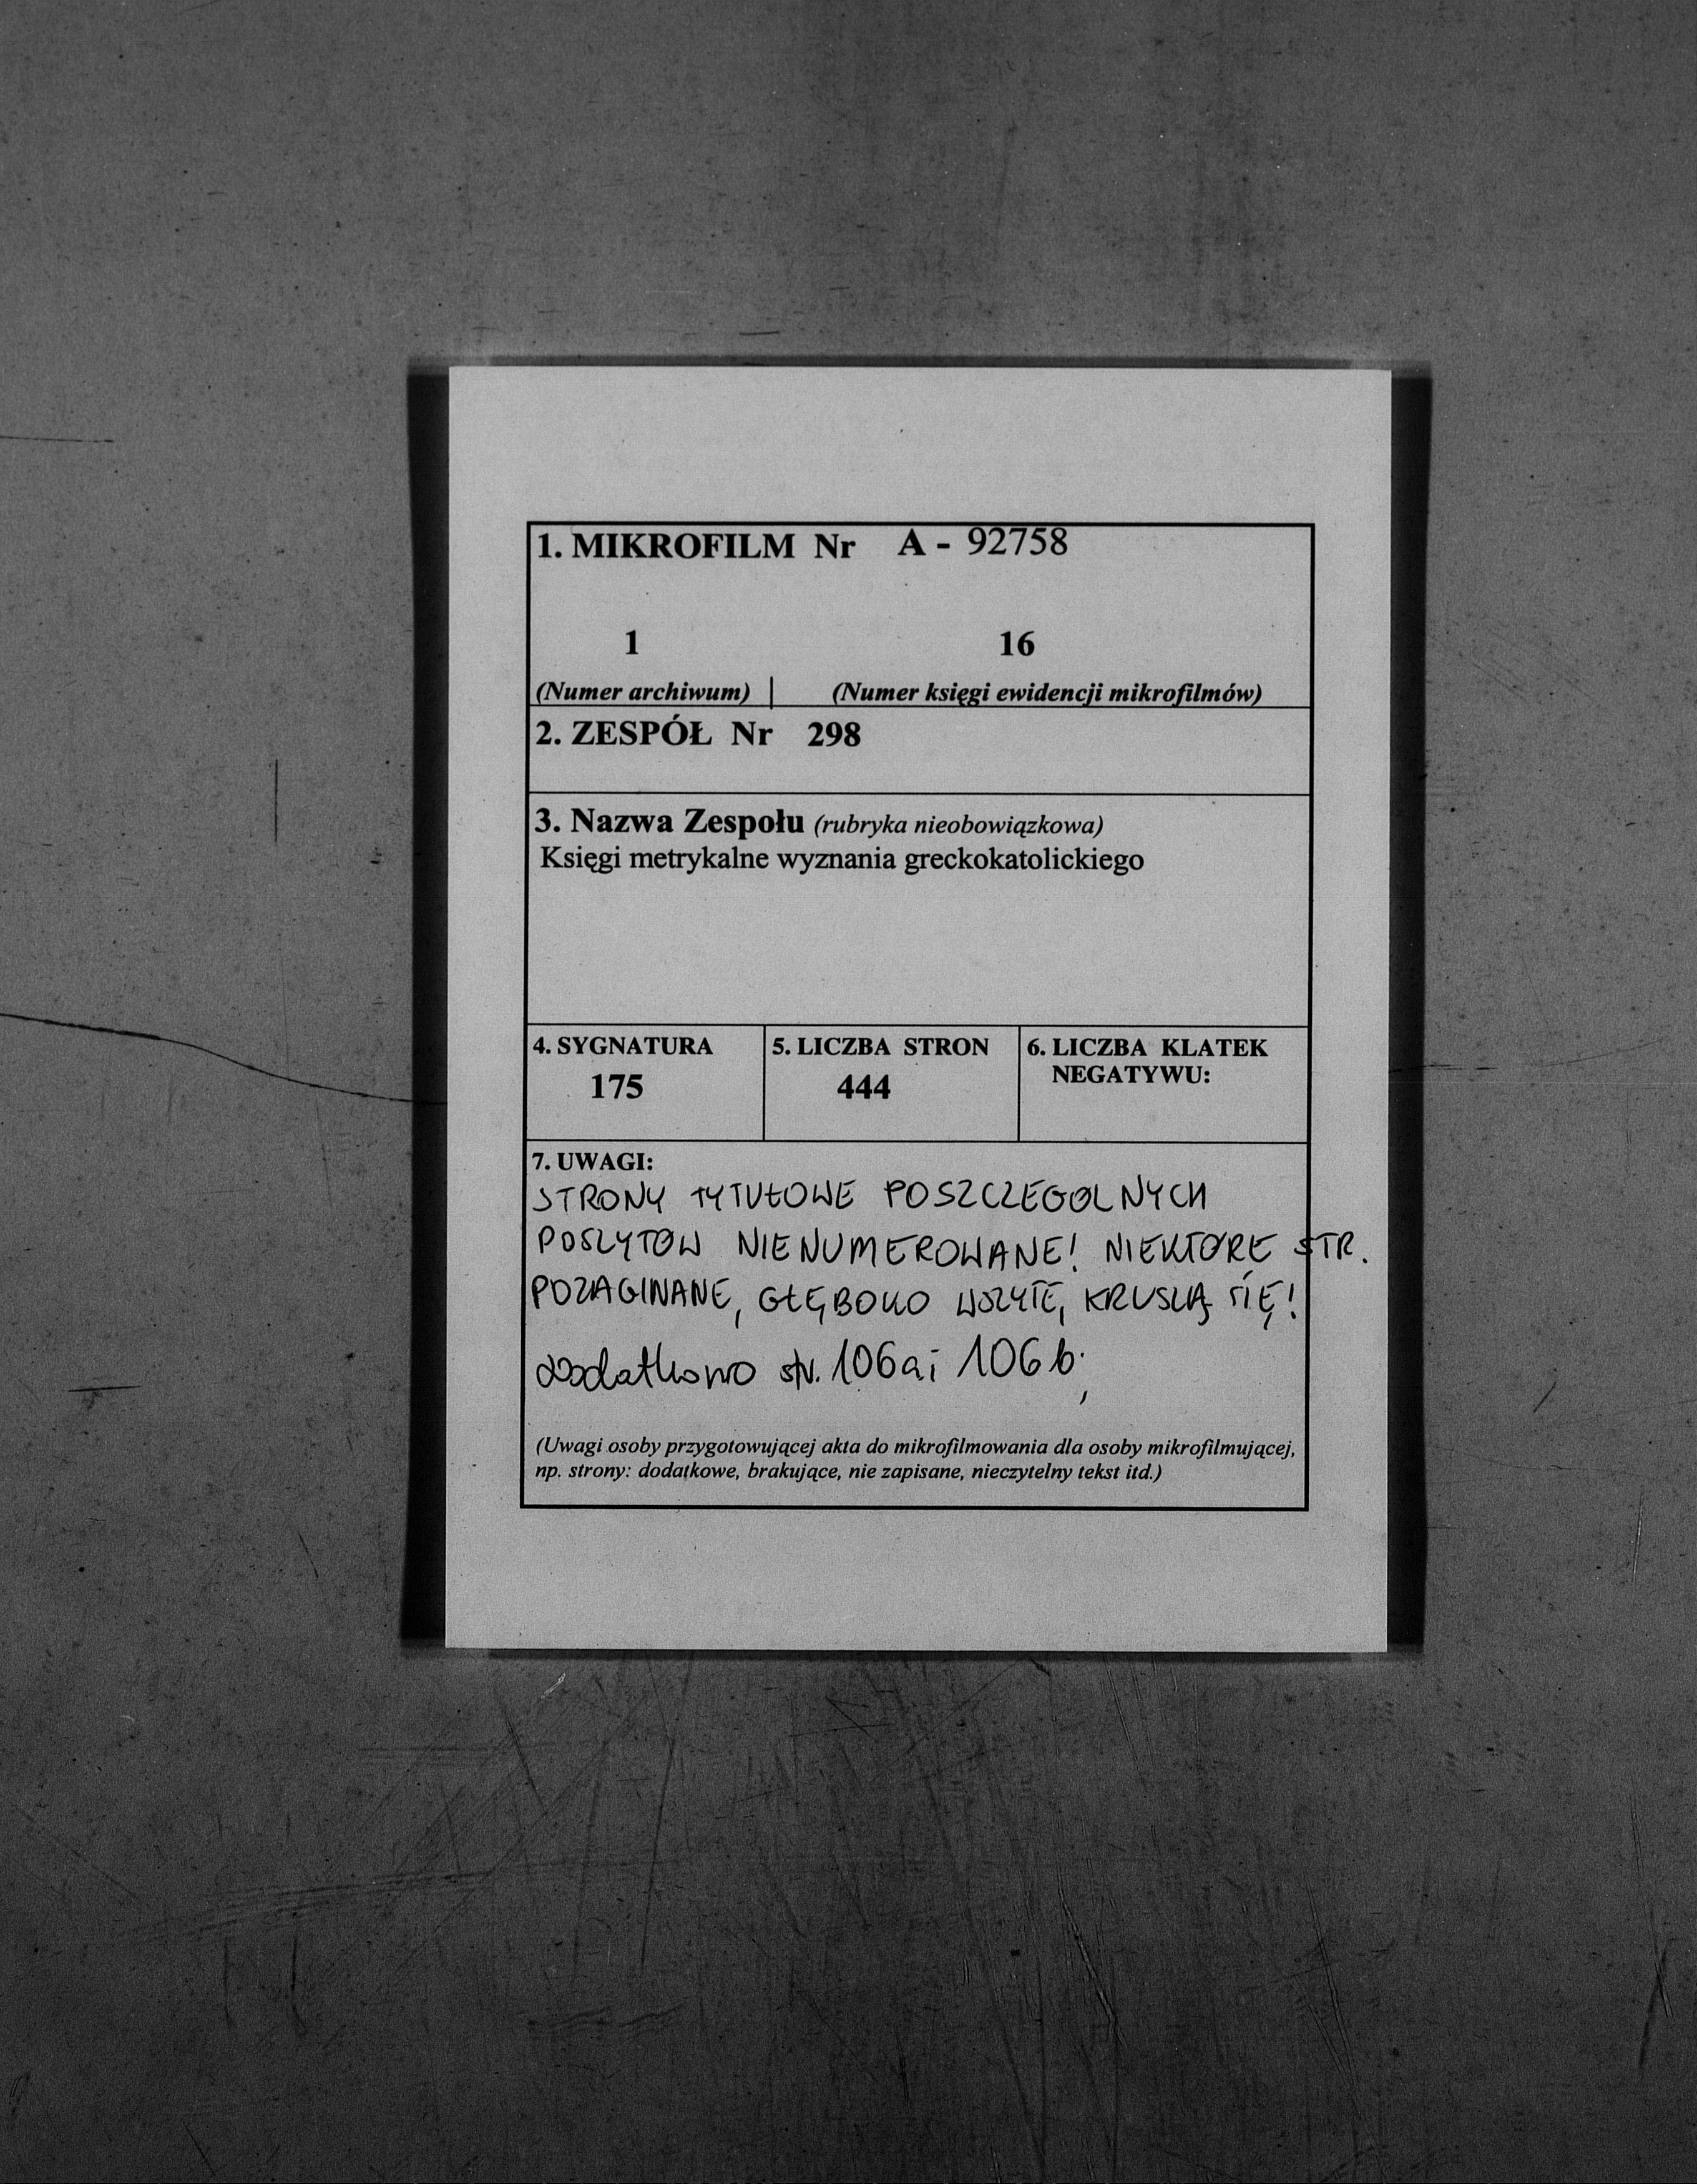 1. MIKROFILM Nr A - 92758
1 16
(Numer archiwum) | (Numer księgi ewidencji mikrofilmów)
2. ZESPÓŁ Nr 298
3. Nazwa Zespołu (rubryka nieobowiązkowa)
Księgi metrykalne wyznania greckokatolickiego
4. SYGNATURA 5. LICZBA STRON 6. LICZBA KLATEK
NEGATYWU:
175 444
7. UWAGI:
STRONY TYTUŁOWE POSZCZEGÓLNYCH
POSZYTÓW NIENUMEROWANE! NIEKTÓRE STR.
POZAGINANE, GŁĘBOKO WSZYTE, KRUSZĄ SIĘ!
dodatkowo str. 106a i 106b;
(Uwagi osoby przygotowującej akta do mikrofilmowania dla osoby mikrofilmującej,
np. strony: dodatkowe, brakujące, nie zapisane, nieczytelny tekst itd.)